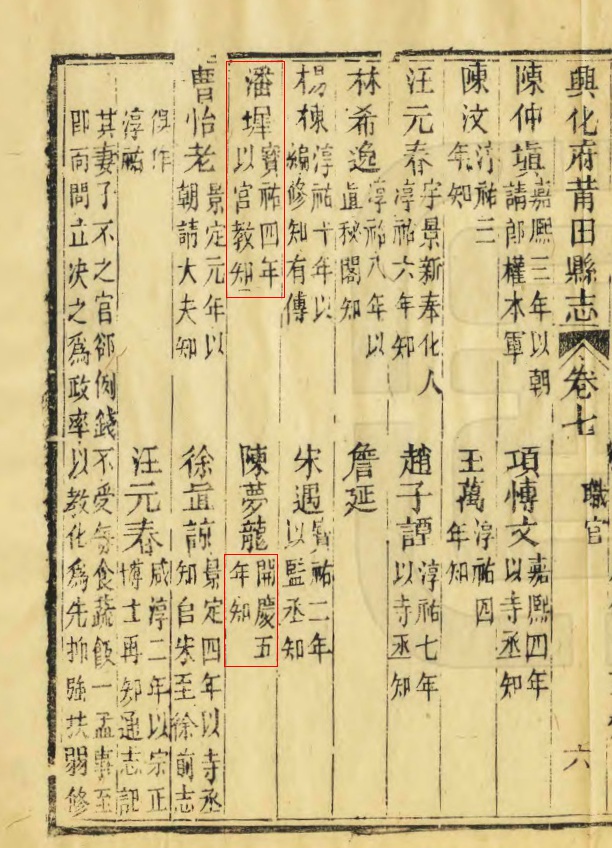 興化府莆田縣志 卷七 職官 六
陳仲塡 嘉熙三年以朝請郎權本軍 項愽文 嘉熙四年以寺丞知
陳汶 淳祐三年知 王萬 淳祐四年知
汪元春 字景新奉化人淳祐六年知 趙子譚 淳祐七年以寺丞知
林希逸 淳祐八年以直秘閣知 詹延
楊棟 淳祐十年以編修知有傳 宋遇 寶祐二年以監丞知
潘墀 寶祐四年以宮教知 陳夢龍 開慶五年知
曹怡老 景定元年以朝請大夫知 徐直諒 景定四年以寺丞知自朱至徐前志
俱作淳祐 汪元春 咸淳二年以宗正博士再知通志記
其妻子不之官郤例錢不受每食蔬飯一盂事至
即面問立决之爲政率以教化爲先抑強扶弱修